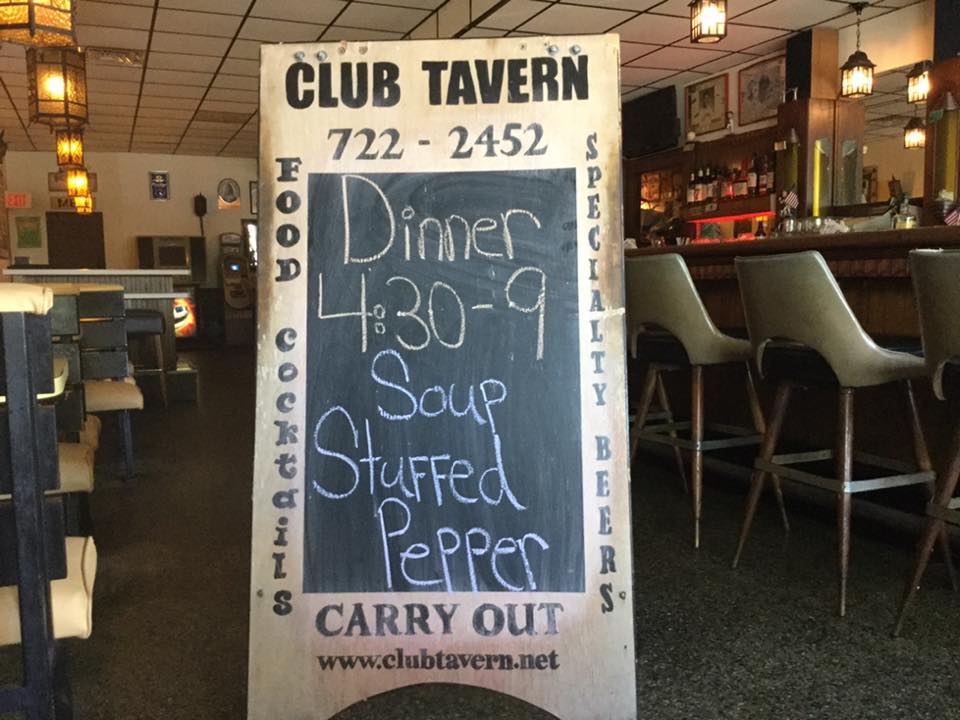 CLUB TAVERN
722 - 2452
FOOD COCKTAILS
SPECIALTY BEERS
Dinner
4:30-9
Soup
Stuffed
Pepper
CARRY OUT
www.clubtavern.net
EXIT